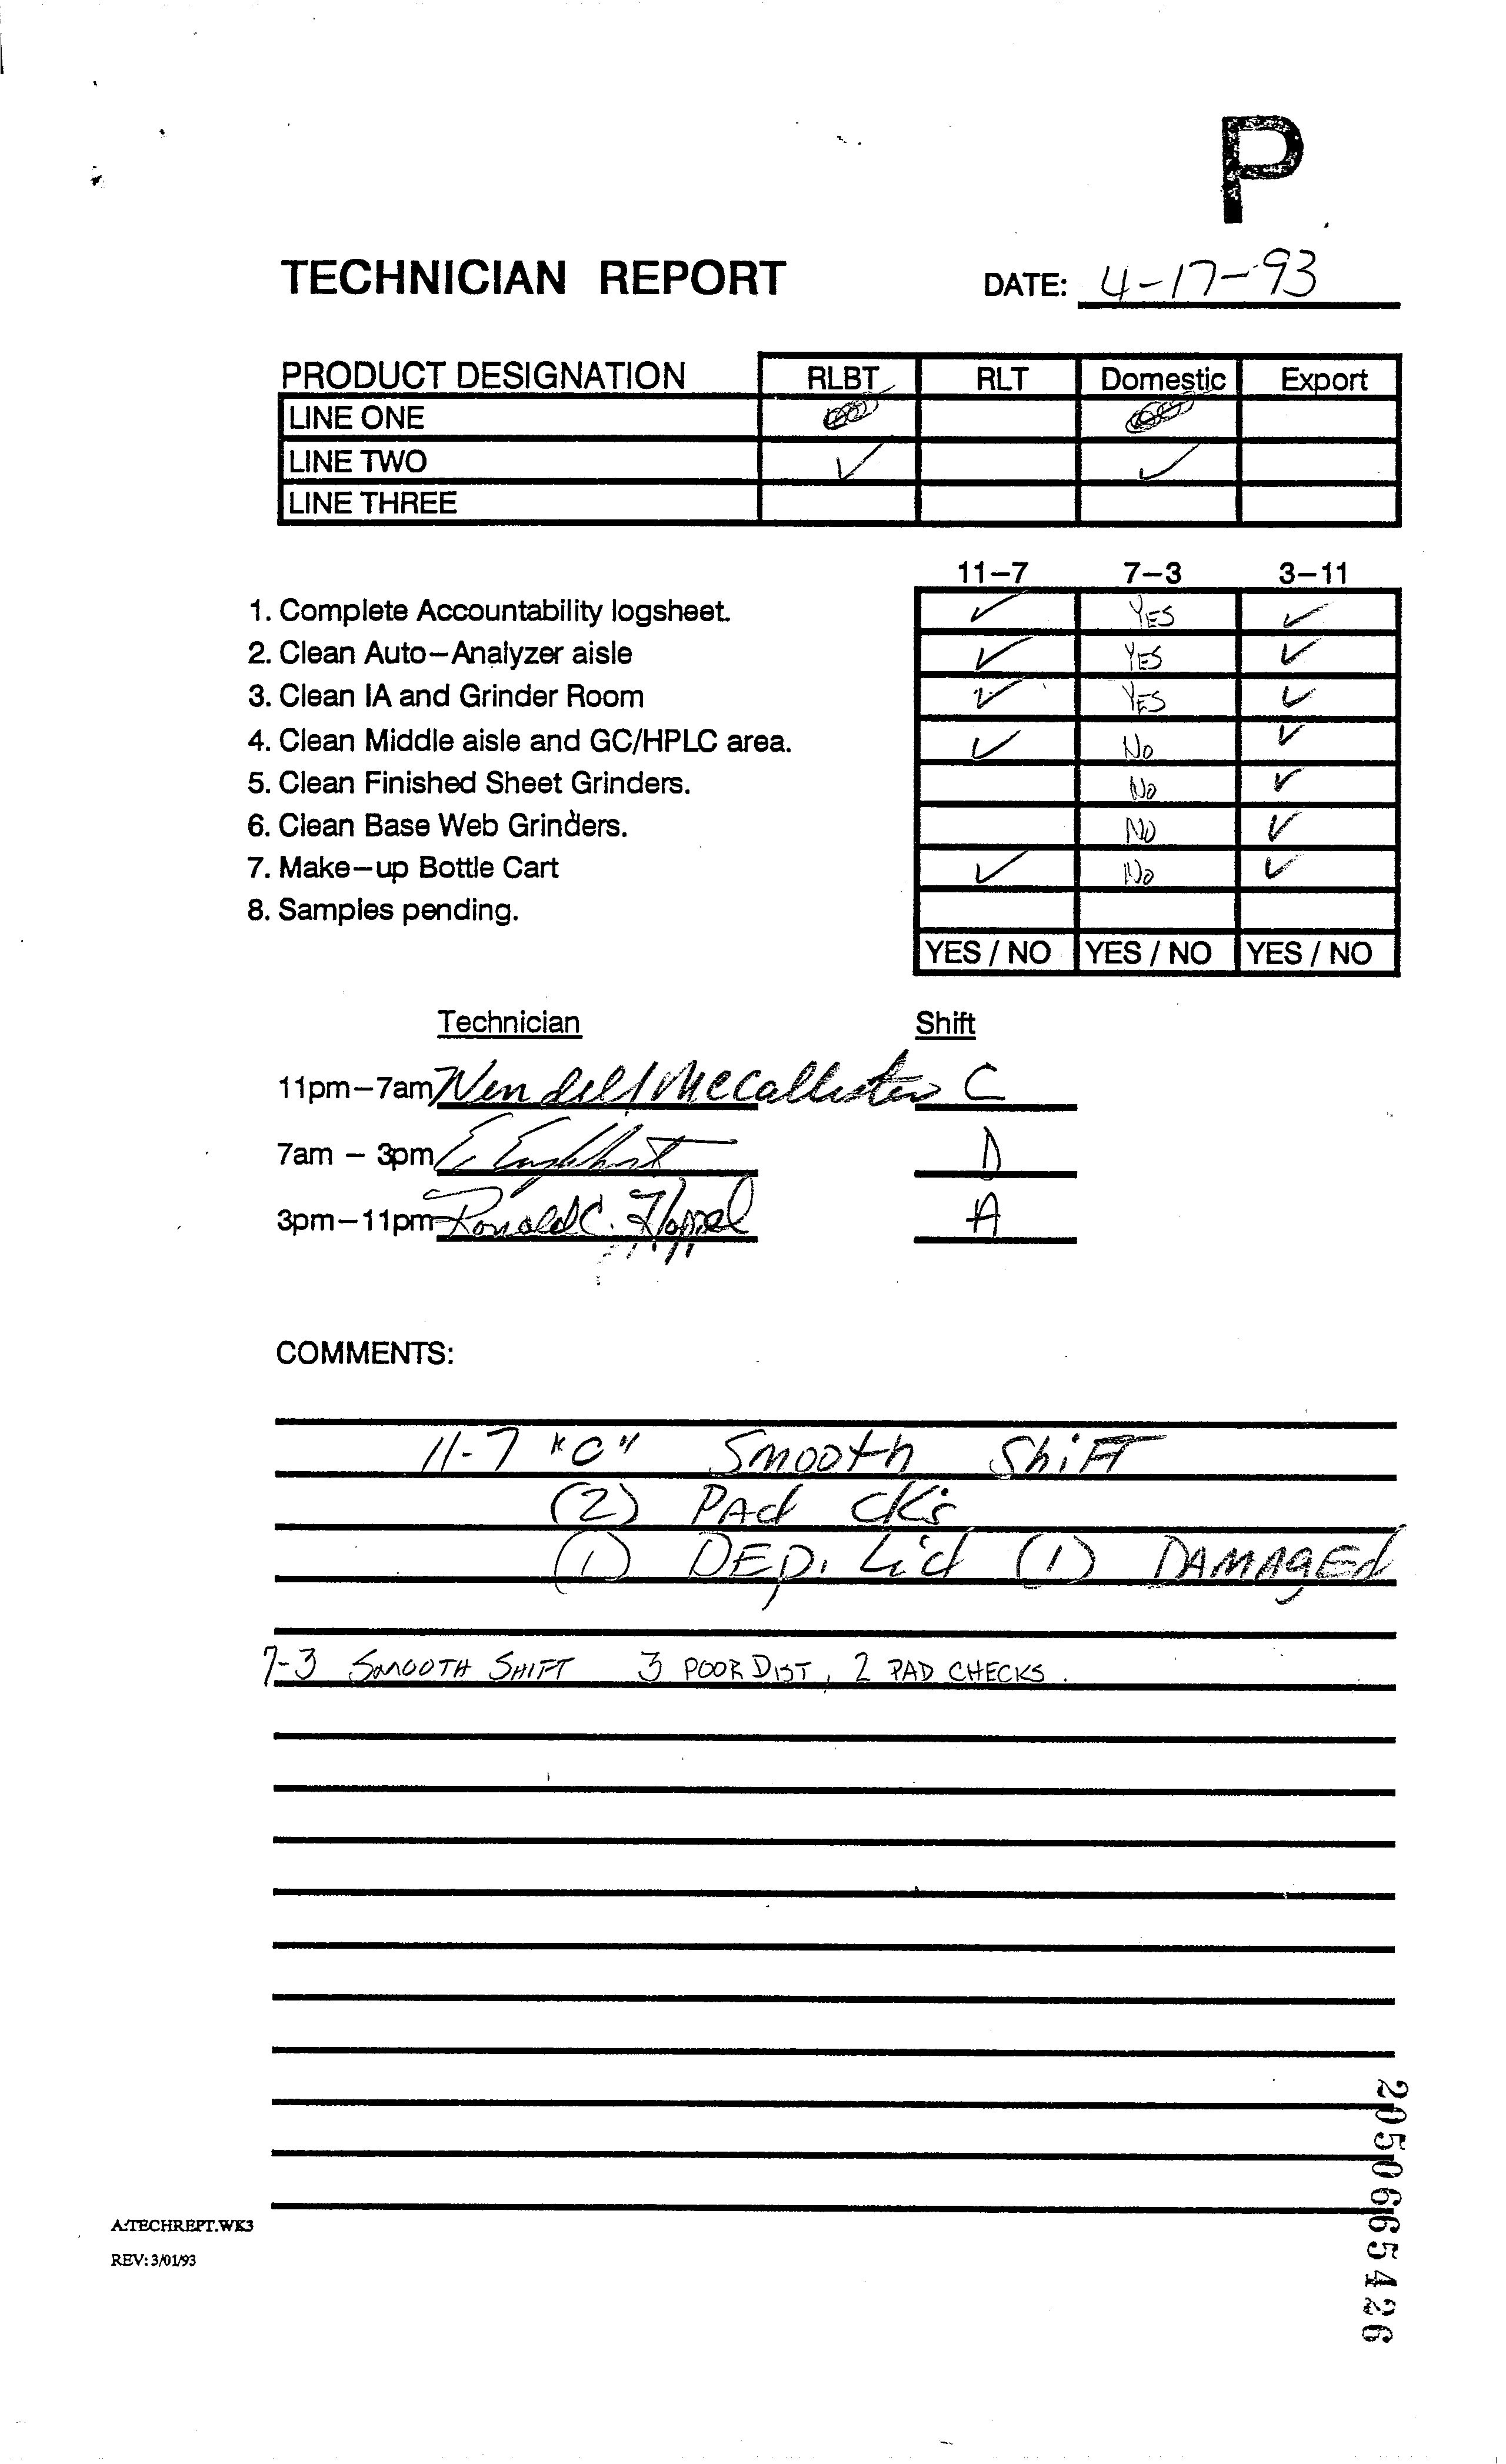 P
TECHNICIAN REPORT DATE: 4-17-93
PRODUCT DESIGNATION RLBT RLT Domestic Export
LINE ONE
LINE TWO ✓ ✓
LINE THREE
11-7 7-3 3-11
1. Complete Accountability logsheet. ✓ YES ✓
2. Clean Auto-Analyzer aisle ✓ YES ✓
3. Clean IA and Grinder Room ✓ YES ✓
4. Clean Middle aisle and GC/HPLC area. ✓ No ✓
5. Clean Finished Sheet Grinders. No ✓
6. Clean Base Web Grinders. NO ✓
7. Make-up Bottle Cart ✓ No ✓
8. Samples pending.
YES / NO YES / NO YES / NO
Technician Shift
11pm-7am Wendell McCallister C
7am - 3pm E. D
3pm-11pm Ronald C. A
COMMENTS:
11-7 "C" Smooth Shift
(2) PAd cks
(1) DEP. Lid (1) DAMAGEd
7-3 SMOOTH SHIFT 3 POOR DIST, 2 PAD CHECKS.
A:TECHREPT.WK3
REV: 3/01/93
2050665426